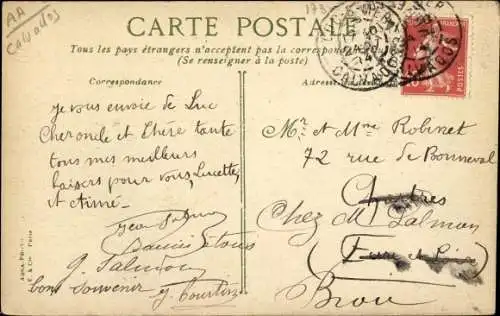 AA
Calvados
CARTE POSTALE
Tous les pays étrangers n'acceptent pas la correspon
(Se renseigner à la poste)
Correspondance
Adresse
je vous envoie de Luc
Cheronde et Chère tante
tous mes meilleurs
baisers pour vous, Lucette,
et Aimé
G. Salmon
bon souvenir
Y. Courtin
Mr et Mme Robinet
72 rue de Bonneval
Chartres
Chez M. Salmon
(Eure et Loir)
Brou
CALVADOS
POSTES